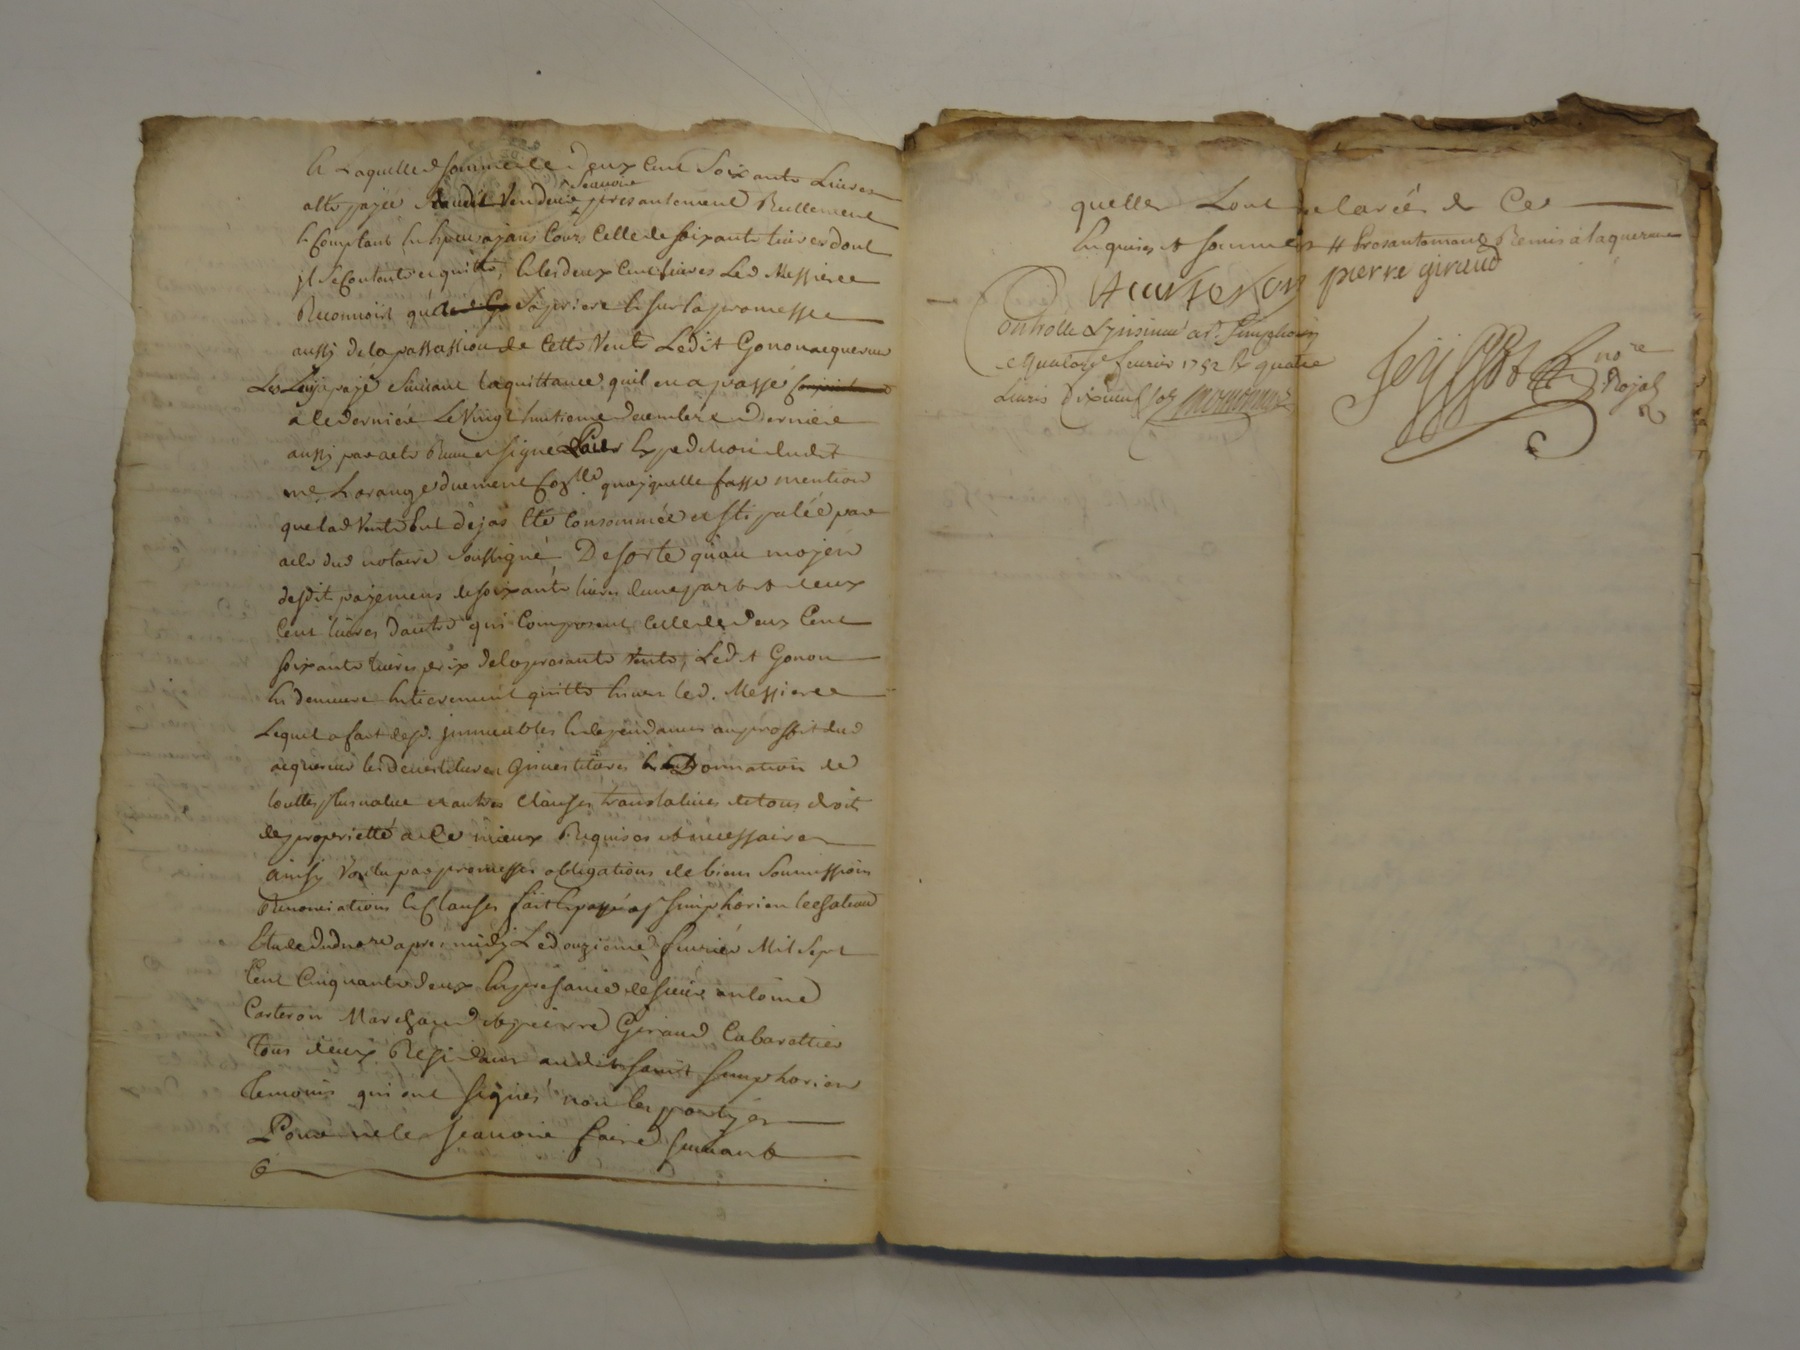 Et Laquelle somme de deux Cent Soixante Livres
atté payée audit Vendeur sçavoir presantement Reellement
& Comptant En Especes ayans Cours Celle de soixante livres dont
il se Contante et quitte, & les deux Cent livres Led. Messiere
Reconnoist que a sa priere & sur la promesse
aussy de la passassion de Cette Vente Ledit Gonon acquereur
Les paye Suivant la quittance quil en a passé
a le dernier Le Vingt huitieme decembre dernier
aussy par acte Receu et signé Expedition dudit
me. Lorange duement Conlle. quoyquelle fasse mention
que lad. Vente Eut dejas Eté Consommée et stipulée par
acte dud notaire soussigné, De sorte qu'au moyen
desdits payemens de soixante livres dune part et deux
Cent livres d'autre qui Composent Celle de deux Cent
soixante livres prix de la presante Vente, Ledit Gonon
En demeure Entierement quitte Envers led. Messiere
Lequel a fait desd. immeubles & dependances au proffit dud
acquereur les devestitures investitures & Donnation de
touttes plus value et autres Clauses translatives de tous droits
de proprietté a Ce mieux Requises et necessaires
ainsy Voulu par promesses obligations de biens Soumissions
Renonciations & Clauses fait & passé a st Simphorien le Chateau
Etude dud nore apres midy Le douzieme fevrier Mil Sept
Cent Cinquante deux En presance de sieur antoine
Carteron Marchand et pierre Giraud Cabarettier
Tous deux Residant audit saint Simphorien
Temoins qui ont signés non les partyes
Pour ne le sçavoir faire suivant
quelles Lont declarées de Ce
Enquises et sommées # Presantement Remis a laquereur
A Carteron pierre giraud
Controllé & insinué a st. Simphorien
le quatorze fevrier 1752 R. quatre
Livres dixneuf sols
nore
Royal